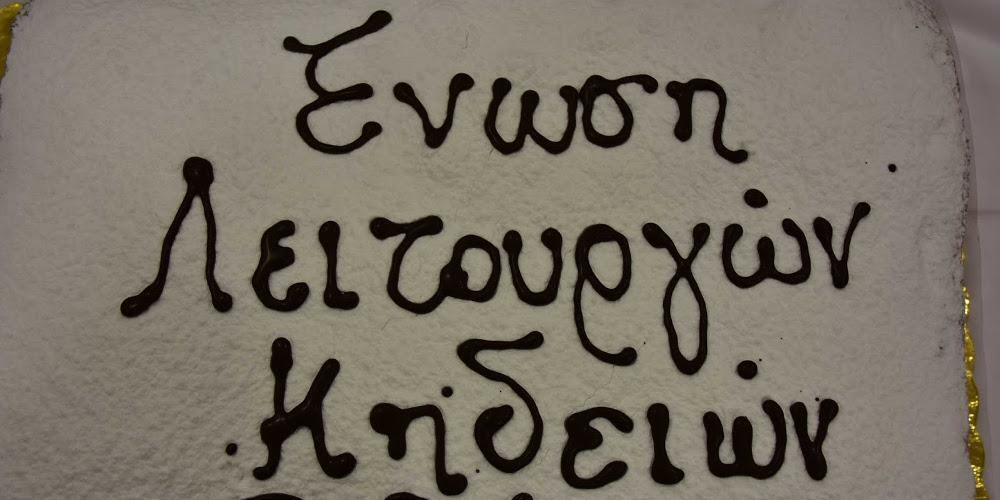 Ένωση
Λειτουργών
Κηδειών